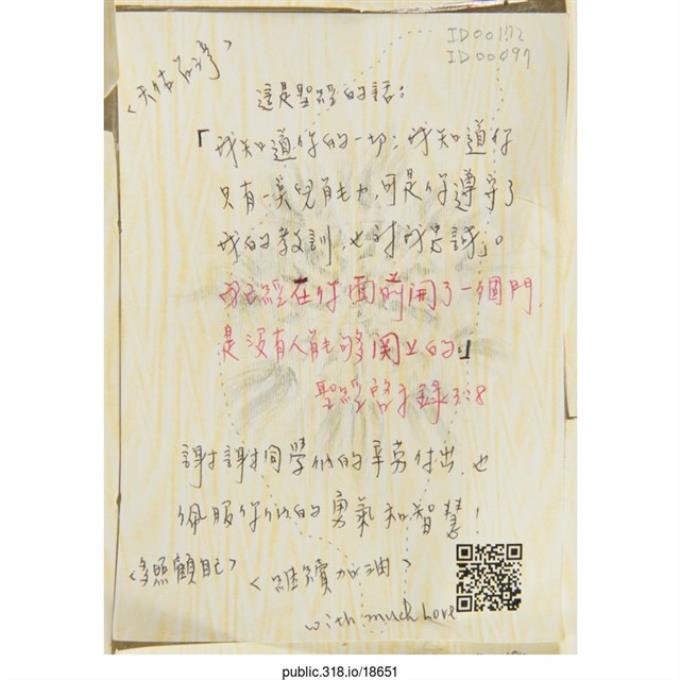 ID00172
ID00097
<天佑台灣>
這是聖經的話:
「我知道你的一切;我知道你
只有一點兒能力,可是你遵守了
我的教訓,也對我忠誠」。
我已經在你面前開了一個門,
是沒有人能夠關上的」
聖經啓示錄3:8
謝謝同學們的辛勞付出,也
佩服你們的勇氣和智慧!
<多照顧自己>
<繼續加油>
with much Love
public.318.io/18651